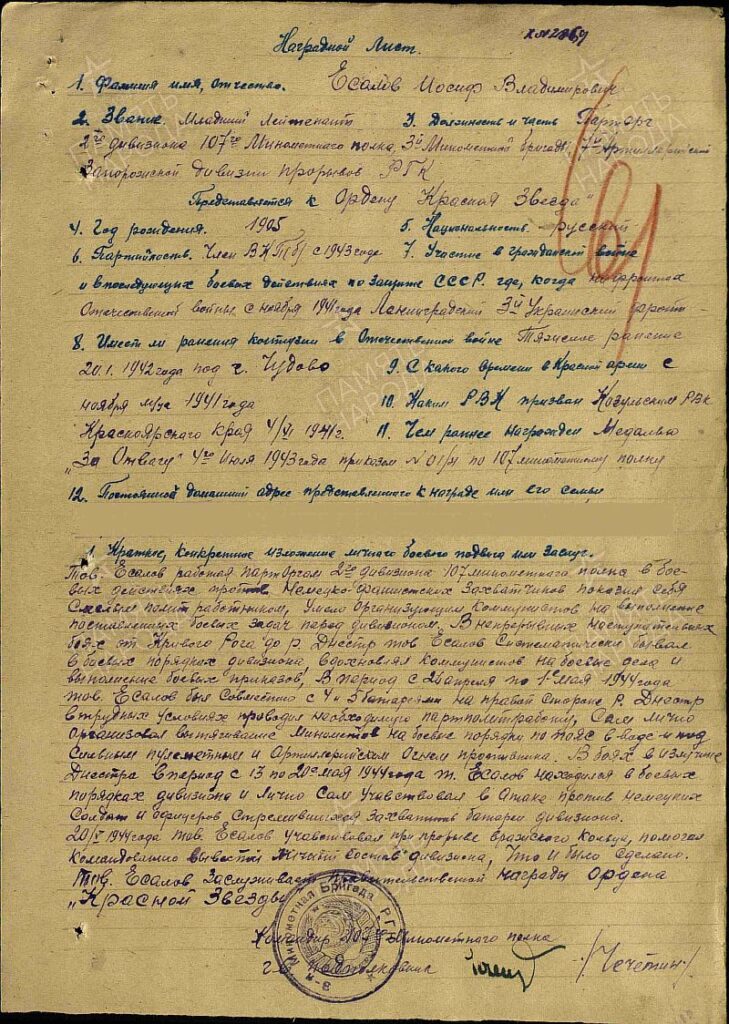 Наградной Лист.
1. Фамилия имя, отчество. Есалов Иосиф Владимирович
2. Звание. Младший Лейтенант 3. Должность и часть Парторг
2го дивизиона 107го Минометного полка, 3й Минометной бригады 7й Артиллерийской
Запорожской дивизии прорывов РГК
Представляется к Ордену "Красная Звезда"
4. Год рождения. 1905 5. Национальность. русский
6. Партийность. Член ВКП(б) с 1943 годе 7. Участие в гражданской войне
и в последующих боевых действиях по защите СССР. где, когда на фронтах
Отечественной войны с ноября 1941 года Ленинградский 3й Украинский
8. Имеет ли ранения контузии в Отечественной войне Тяжелое ранение
20.1.1942 года под г. Чудово 9. С какого времени в Красной армии с
ноября м/ца 1941 года 10. Каким РВК призван Козульским РВК
Красноярского край 4/VI 1941г. 11. Чем раннее награжден Медалью
"За Отвагу" 4го Июля 1943 года приказом N 01/н по 107 минометному полку
12. Постоянной домашний адрес представленного к награде или его семьи
1. Краткое, конкретное изложение личного боевого подвига или заслуг.
Тов. Есалов работая парторгом 2го дивизиона 107 минометного полка в бое-
вых действиях против Немецко-фашистских захватчиков показал себя
Смелым полит работником, умело организующим коммунистов на выполнение
поставленных боевых задач перед дивизионом. В непрерывных наступательных
боях от Кривого Рога до р. Днестр тов Есалов Систематически бывал
в боевых порядках дивизиона, вдохновляя коммунистов на боевые дела и
выполнение боевых приказов, В период с 26 апреля по 1е мая 1944 года
тов. Есалов был Совместно с 4 и 5 батареями на правой Стороне р. Днестр
в трудных условиях проводил необходимую партполитработу, Сам лично
Организовал вытягивание Минометов на боевые порядки по пояс в воде и под
Сильным пулеметным и Артиллерийском Огнем противника. В боях в излучине
Днестра в период с 13 по 20е мая 1944 года т. Есалов находился в боевых
порядках дивизиона и лично Сам Учавствовал в Атаке против немецких
Солдат и офицеров Стремившихся Захватить батареи дивизиона.
20/V 1944 года тов. Есалов Учавствовал при прорыве вражского кольца, помогая
Командованию вывести личный состав дивизиона, Что и было сделано.
Тов. Есалов Заслуживает Правительственной Награды Ордена
"Красной Звезды"
Командир 107го Минометного полка
гв. подполковник /Чечетин/
Минометная Бригада РГК
ПАМЯТЬ НАРОДА